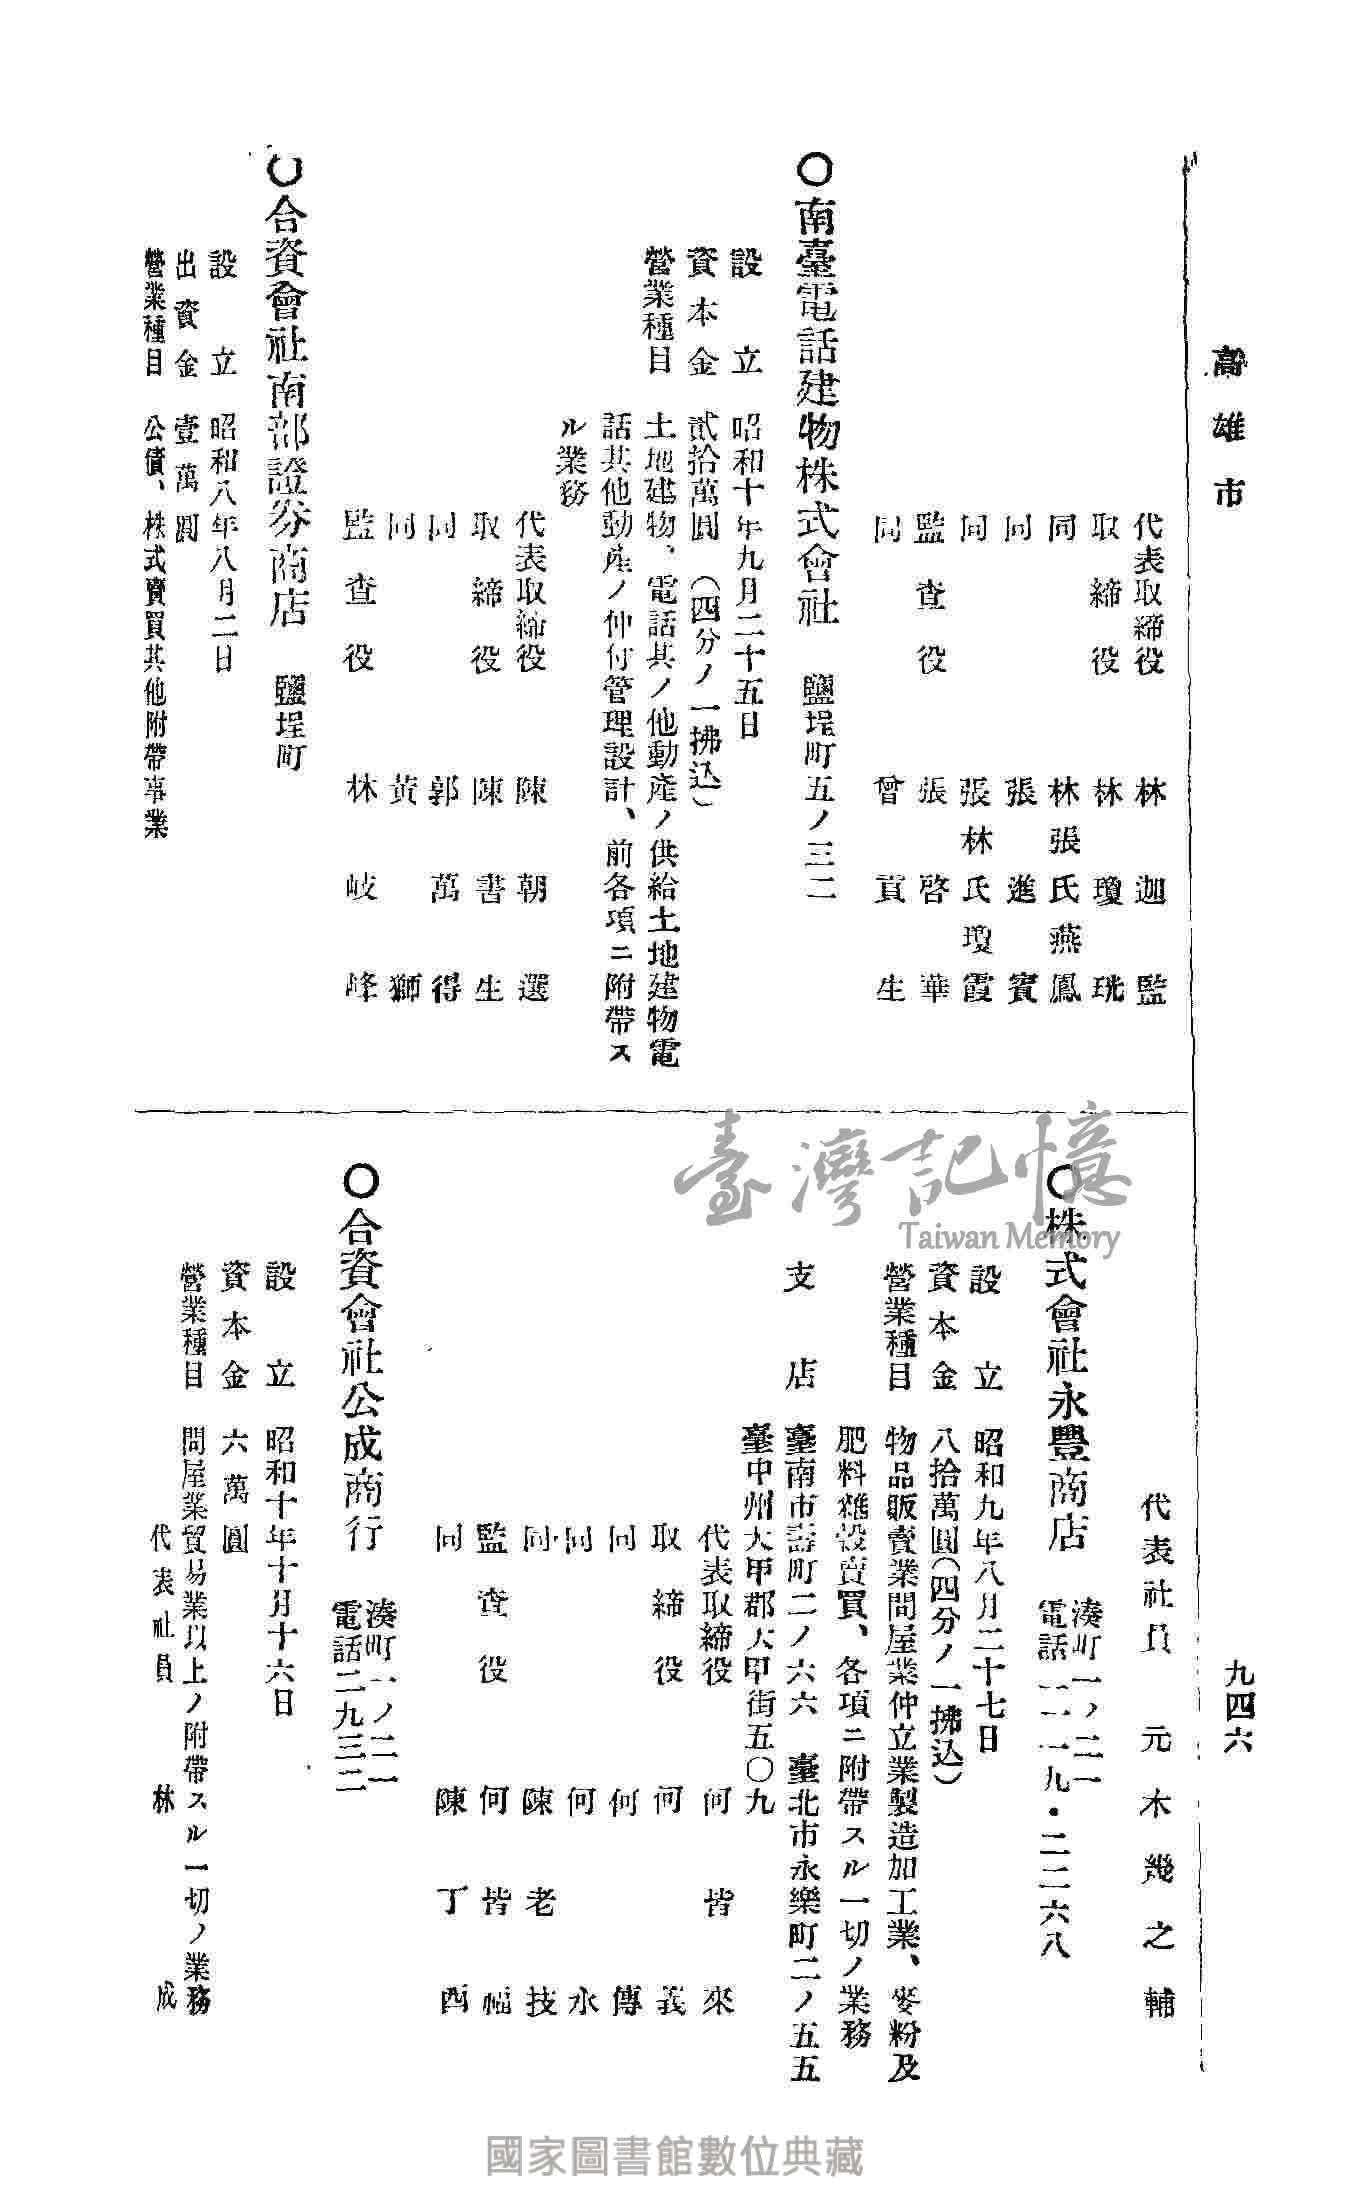 高雄市
九四六
代表取締役 林迦監
取締役 林瓊珖
同 林張氏燕鳳
同 張進賓
同 張林氏瓊霞
監査役 張啓華
同 曾貢生
○南臺電話建物株式會社 鹽埕町五ノ三二
設立 昭和十年九月二十五日
資本金 貳拾萬圓(四分ノ一拂込)
營業種目 土地建物、電話其ノ他動產ノ供給土地建物電
話其他動產ノ仲付管理設計、前各項ニ附帶ス
ル業務
代表取締役 陳朝選
取締役 陳書生
同 郭萬得
同 黃獅
監査役 林岐峰
○合資會社南部證券商店 鹽埕町
設立 昭和八年八月二日
出資金 壹萬圓
營業種目 公債、株式賣買其他附帶事業
代表社員 元木幾之輔
○株式會社永豐商店 湊町一ノ二一
電話二一一九・二二六八
設立 昭和九年八月二十七日
資本金 八拾萬圓(四分ノ一拂込)
營業種目 物品販賣業問屋業仲立業製造加工業、麥粉及
肥料雜穀賣買、各項ニ附帶スル一切ノ業務
支店 臺南市壽町二ノ六六 臺北市永樂町二ノ五五
臺中州大甲郡大甲街五〇九
代表取締役 何皆來
取締役 何義
同 何傳
同 何永
同 陳老技
監査役 何皆福
同 陳丁酉
○合資會社公成商行 湊町一ノ二一
電話二九三二
設立 昭和十年十月十六日
資本金 六萬圓
營業種目 問屋業貿易業以上ノ附帶スル一切ノ業務
代表社員 林成
臺灣記憶
Taiwan Memory
國家圖書館數位典藏